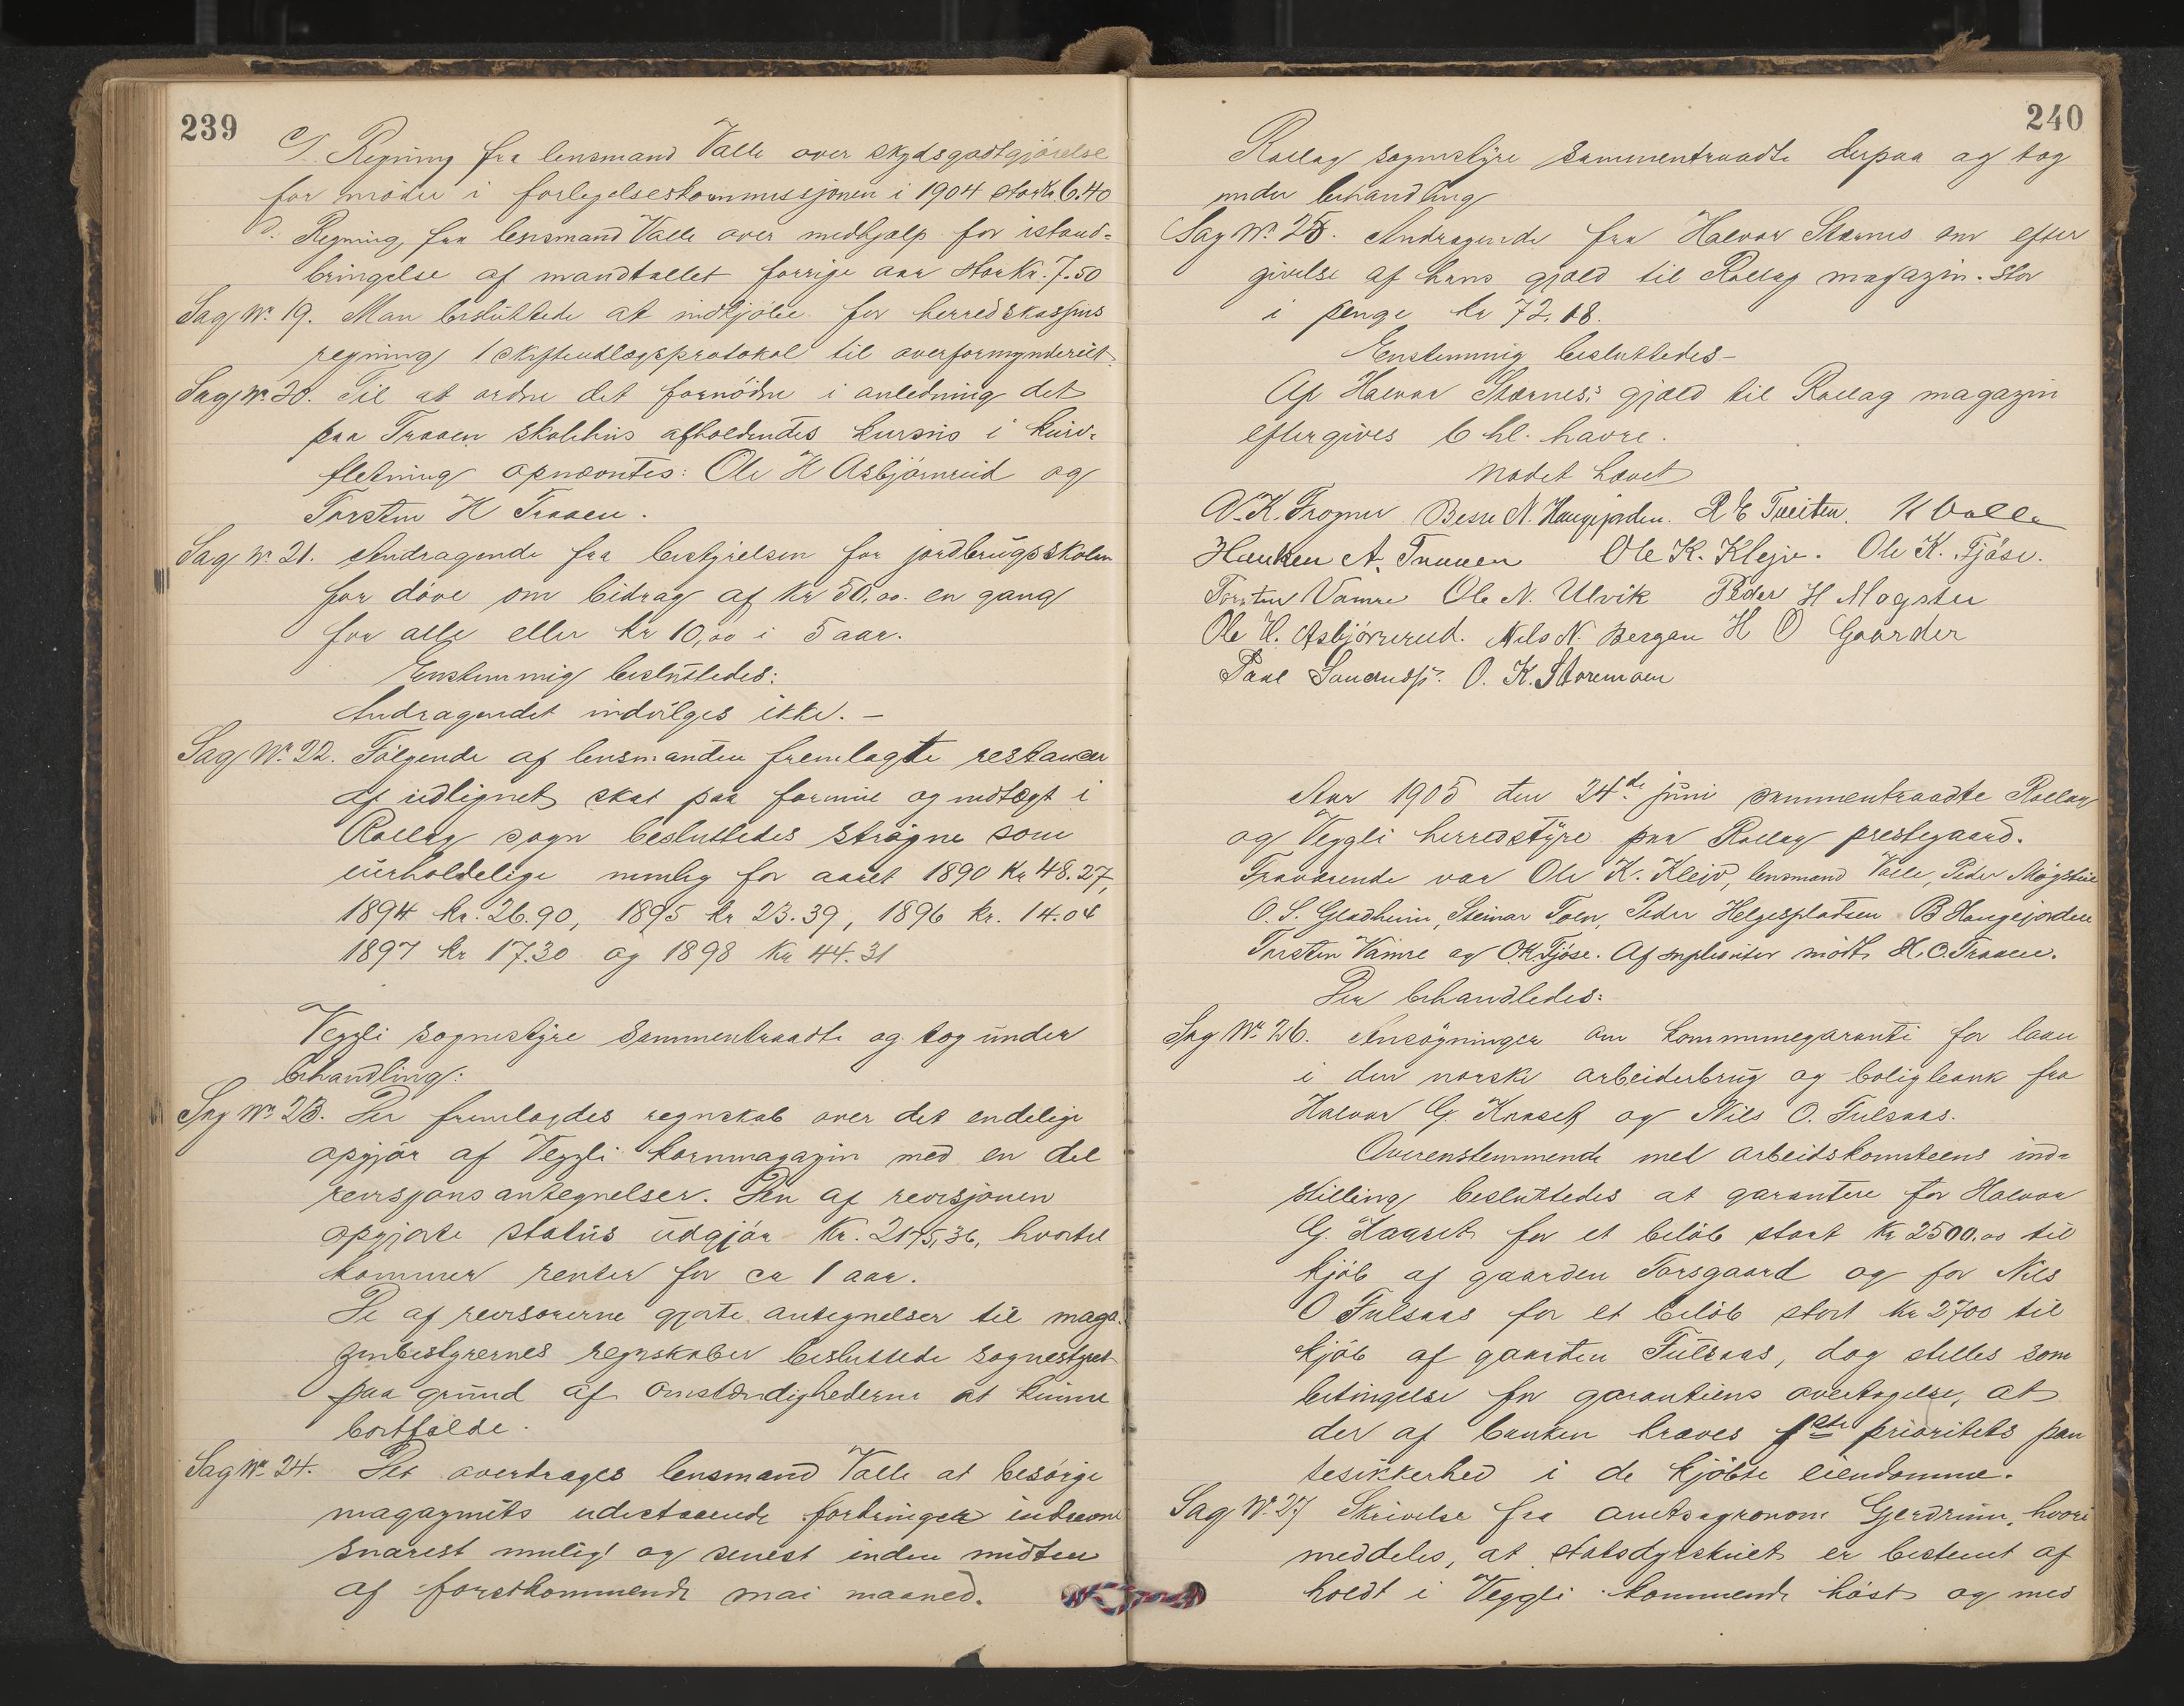 239
c. Regning fra lensmand Valle over skydsgodtgjörelse
for möder i forligelseskommissjonen i 1904 stor kr. 6.40
d. Regning fra lensmand Valle over medhjælp for istand-
bringelse af mandtallet forrige aar stor Kr. 7.50
Sag Nr. 19. Man besluttede at indkjöbe for herredskassens
regning 1 skifteudlægsprotokol til overformynderiet.
Sag Nr. 20. Til at ordne det fornödne i anledning det
paa Traaen skolehus afholdendes kursus i kurv-
fletning opnævntes: Ole H Asbjörnrud og
Torsten H Traaen.
Sag Nr. 21. Andragende fra bestyrelsen for jordbrugsskolen
for döve om bidrag af Kr 50,00 en gang
for alle eller kr 10,00 i 5 aar.
Enstemmig besluttedes:
Andragendet indvilges ikke. –
Sag Nr. 22. Fölgende af lensmanden fremlagte restancer
af udlignet skat paa formue og indtægt i
Rollag sogn besluttedes strögne som
uerholdelige nemlig for aaret 1890 Kr 48.27,
1894 kr. 26.90, 1895 kr 23.39, 1896 kr. 14.04
1897 kr 17.30 og 1898 Kr 44.31
Veggli sognestyre sammentraadte og tog under
behandling:
Sag Nr. 23. Der fremlagdes regnskab over det endelige
opgjör af Veggli kornmagazin med en del
revisjons antegnelser. Den af revisjonen
opgjorte status udgjör Kr. 2175,36, hvortil
kommer renter for ca 1 aar.
De af revisorerne gjorte antegnelser til maga-
zinbestyrernes regnskaber besluttede sognestyret
paa grund af omstændighederne at kunne
bortfalde.
Sag Nr. 24. Det overdrages lensmand Valle at besörge
magazinets udestaaende fordringer inddrevne
snarest mulig og senest inden midten
af förstkommende mai maaned.
240
Rollag sognestyre sammentraadte derpaa og tog
under behandling
Sag Nr. 25. Andragende fra Halvor Stærnes om efter
givelse af hans gjæld til Rollag magazin. Stor
i penge kr 72.18.
Enstemmig besluttedes –
Af Halvor Stærnes's gjæld til Rollag magazin
eftergives 6 hl. havre.
Mödet hævet
N. K. Frogner Besse N. Haugejorden. R E Tveiten. Valle
Haaken A. Traaen Ole K. Klejv. Ole K. Fjöse.
Torsten Vamre Ole N. Ulvik Peder H Mogster
Ole H. Asbjörnrud. Nils N. Bergan H O Gaarder
Paal O. K. Storemoen
Aar 1905 den 24de juni sammentraadte Rollag
og Veggli herredstyre paa Rollag prestegaard.
Fraværende var Ole K. Klejv, lensmand Valle, Peder Mogster
O. S. Gladheim, Steinar Toen, Peder Helgespladsen B Haugejorden
Torsten Vamre og O.K. Fjöse. Af suplianter mödte H. O. Traaen.
Der behandledes:
Sag Nr. 26. Ansögninger om kommunegaranti for laan
i den norske arbeiderbrug og boligbank fra
Halvor G. og Nils O. Fulsaas.
Overenstemmende med arbeidskomiteens ind-
stilling besluttedes at garantere for Halvor
G. for et belöb stort Kr 2500.00 til
kjöb af gaarden Torsgaard og for Nils
O Fulsaas for et belöb stort Kr 2700 til
kjöb af gaarden Fulsaas, dog stilles som
betingelse for garantiens overtagelse, at
der af banken kræves 1ste prioritets pan
tesikkerhed i de kjöbte eiendomme.
Sag Nr. 27 Skrivelse fra amtsagronom Gjerdrum, hvori
meddeles, at statsdyrskuet er bestemt af
holdt i Veggli kommende höst og med